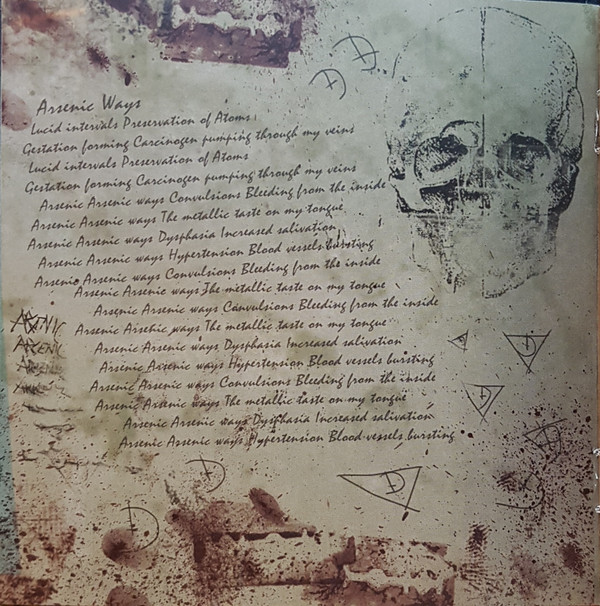 Arsenic Ways
Lucid intervals Preservation of Atoms
Gestation forming Carcinogen pumping through my veins
Lucid intervals Preservation of Atoms
Gestation forming Carcinogen pumping through my veins
Arsenic Arsenic ways Convulsions Bleeding from the inside
Arsenic Arsenic ways The metallic taste on my tongue
Arsenic Arsenic ways Dysphasia Increased salivation
Arsenic Arsenic ways Hypertension Blood vessels bursting
Arsenic Arsenic ways Convulsions Bleeding from the inside
Arsenic Arsenic ways The metallic taste on my tongue
Arsenic Arsenic ways Convulsions Bleeding from the inside
Arsenic Arsenic ways The metallic taste on my tongue
Arsenic Arsenic ways Dysphasia Increased salivation
Arsenic Arsenic ways Hypertension Blood vessels bursting
Arsenic Arsenic ways Convulsions Bleeding from the inside
Arsenic Arsenic ways The metallic taste on my tongue
Arsenic Arsenic ways Dysphasia Increased salivation
Arsenic Arsenic ways Hypertension Blood vessels bursting
ARSENIC